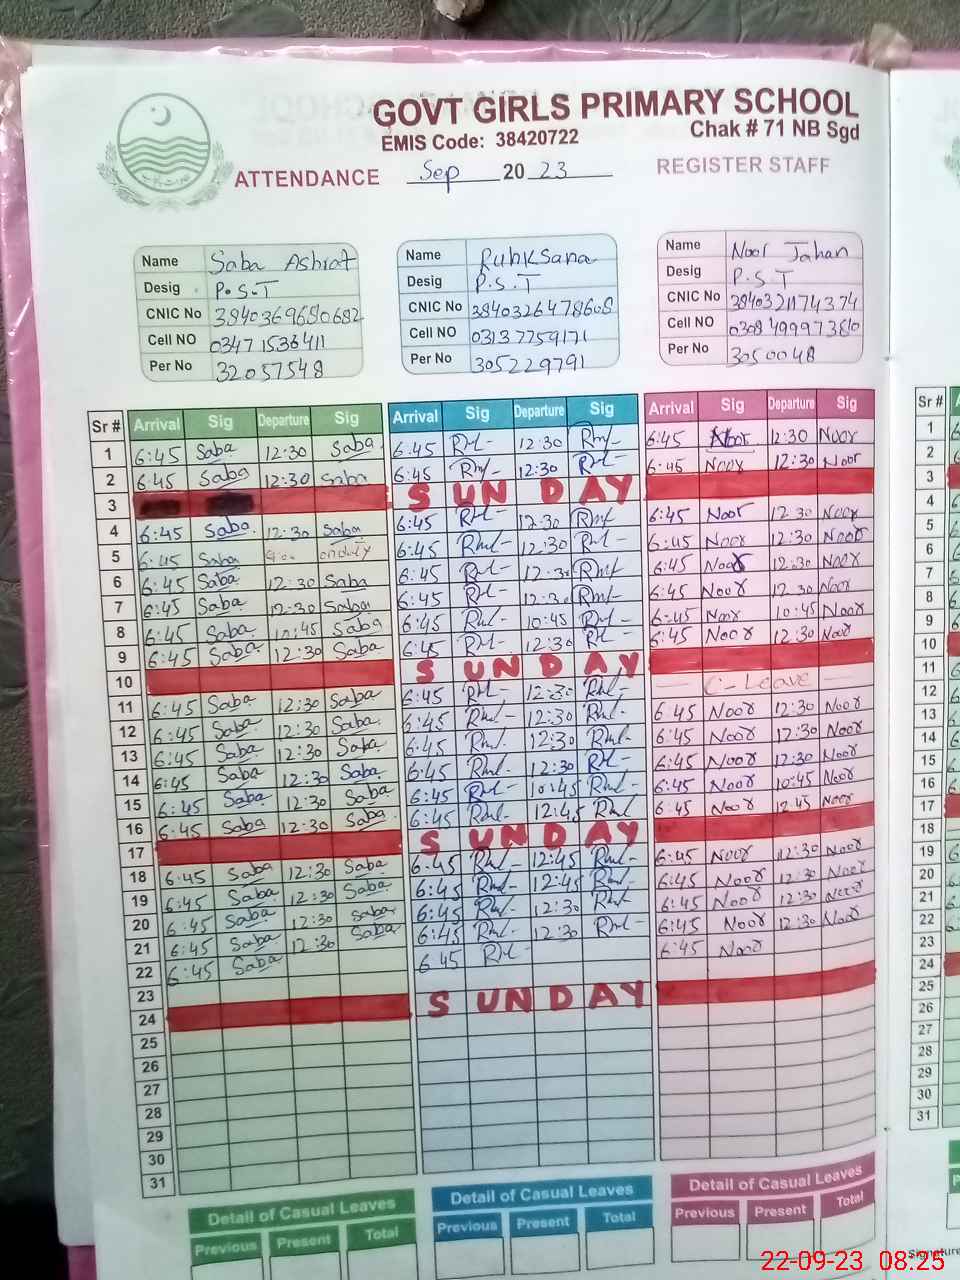 GOVT GIRLS PRIMARY SCHOOL
EMIS Code: 38420722 Chak # 71 NB Sgd
ATTENDANCE Sep 20 23 REGISTER STAFF
Name Saba Ashraf Name Ruhksana Name Noor Jahan
Desig P.S.T Desig P.S.T Desig P.S.T
CNIC No 3840369680682 CNIC No 3840326478608 CNIC No 3840321174374
Cell NO 03471536411 Cell NO 03137759171 Cell NO
Per No 32057548 Per No 305229791 Per No 3050048
Sr # Arrival Sig Departure Sig Arrival Sig Departure Sig Arrival Sig Departure Sig Sr #
1 6:45 Saba 12:30 Saba 6:45 12:30 6:45 Noor 12:30 Noor 1
2 6:45 Saba 12:30 Saba 6:45 12:30 6:45 Noor 12:30 Noor 2
3 SUNDAY 3
4 6:45 Saba 12:30 Saba 6:45 12:30 6:45 Noor 12:30 Noor 4
5 6:45 Saba on duty 6:45 12:30 6:45 Noor 12:30 Noor 5
6 6:45 Saba 12:30 Saba 6:45 12:30 6:45 Noor 12:30 Noor 6
7 6:45 Saba 12:30 Saba 6:45 12:30 6:45 Noor 12:30 Noor 7
8 6:45 Saba 10:45 Saba 6:45 10:45 6:45 Noor 10:45 Noor 8
9 6:45 Saba 12:30 Saba 6:45 12:30 6:45 Noor 12:30 Noor 9
10 SUNDAY 10
11 6:45 Saba 12:30 Saba 6:45 12:30 C-Leave 11
12 6:45 Saba 12:30 Saba 6:45 12:30 6:45 Noor 12:30 Noor 12
13 6:45 Saba 12:30 Saba 6:45 12:30 6:45 Noor 12:30 Noor 13
14 6:45 Saba 12:30 Saba 6:45 12:30 6:45 Noor 12:30 Noor 14
15 6:45 Saba 12:30 Saba 6:45 10:45 6:45 Noor 10:45 Noor 15
16 6:45 Saba 12:30 Saba 6:45 12:45 6:45 Noor 12:45 Noor 16
17 SUNDAY 17
18 6:45 Saba 12:30 Saba 6:45 12:45 6:45 Noor 12:30 Noor 18
19 6:45 Saba 12:30 Saba 6:45 12:45 6:45 Noor 12:30 Noor 19
20 6:45 Saba 12:30 Saba 6:45 12:30 6:45 Noor 12:30 Noor 20
21 6:45 Saba 12:30 Saba 6:45 12:30 6:45 Noor 12:30 Noor 21
22 6:45 Saba 6:45 6:45 Noor 22
23 23
24 SUNDAY 24
25 25
26 26
27 27
28 28
29 29
30 30
31 31
Detail of Casual Leaves Detail of Casual Leaves Detail of Casual Leaves
Previous Present Total Previous Present Total Previous Present Total
Signature
22-09-23 08:25